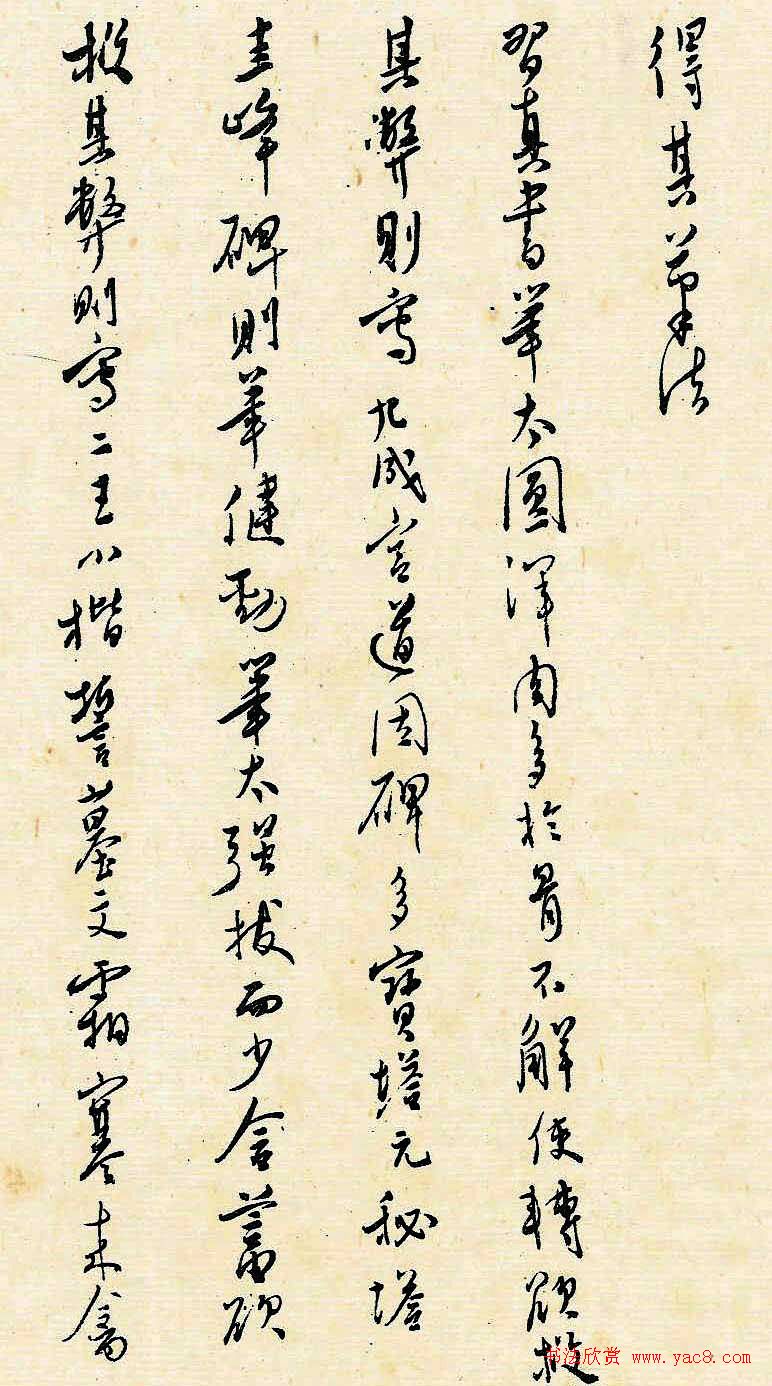 得其筆法
習真書筆太圓渾肉多於骨不解使轉欲救
其弊則寫九成宮道因碑多寶塔元秘塔
圭峰碑則筆健勁筆太强拔而少含蓄欲
救其弊則寫二王小楷誓墓文霜寒來禽
书法欣赏 www.yac8.com